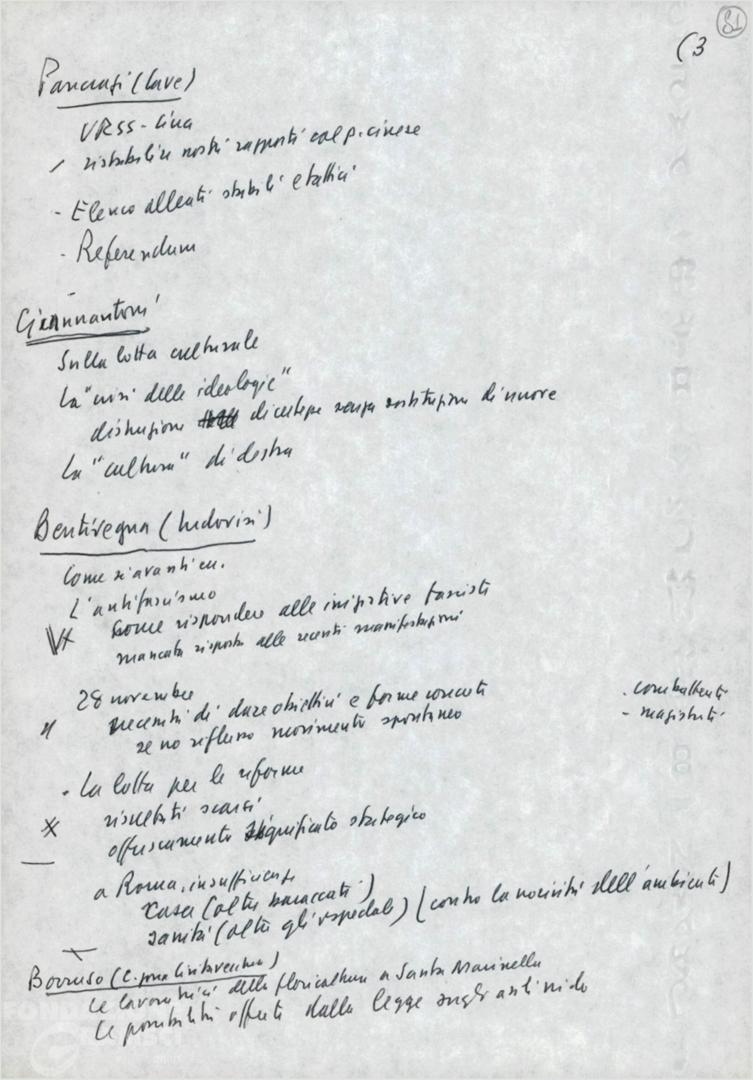 81
(3
Pancrasi (Cave)
URSS - Cina
ristabilire nostri rapporti col p. cinese
- Elenco alleati stabili e tattici
- Referendum
Giannantoni
Sulla lotta culturale
La "crisi delle ideologie"
distruzione di certezze senza sostituzione di nuove
La "cultura" di destra
Bentivegna (Ludovisi)
Come si avanti cu.
L'antifascismo
come rispondere alle iniziative fasciste
mancata risposta alle recenti manifestazioni
28 novembre
necessità di dare obiettivi e forme concrete
se no riflusso movimento spontaneo
. combattenti
- magistrati
. La lotta per le riforme
risultati scarsi
offuscamento significato strategico
a Roma, insufficiente
casa (oltre baraccati)
sanità (oltre gli ospedali) (contro la nocività dell'ambiente)
Borruso (C. Civitavecchia)
Le lavoratrici della floricultura a Santa Marinella
Le possibilità offerte dalla legge sugli asili nido